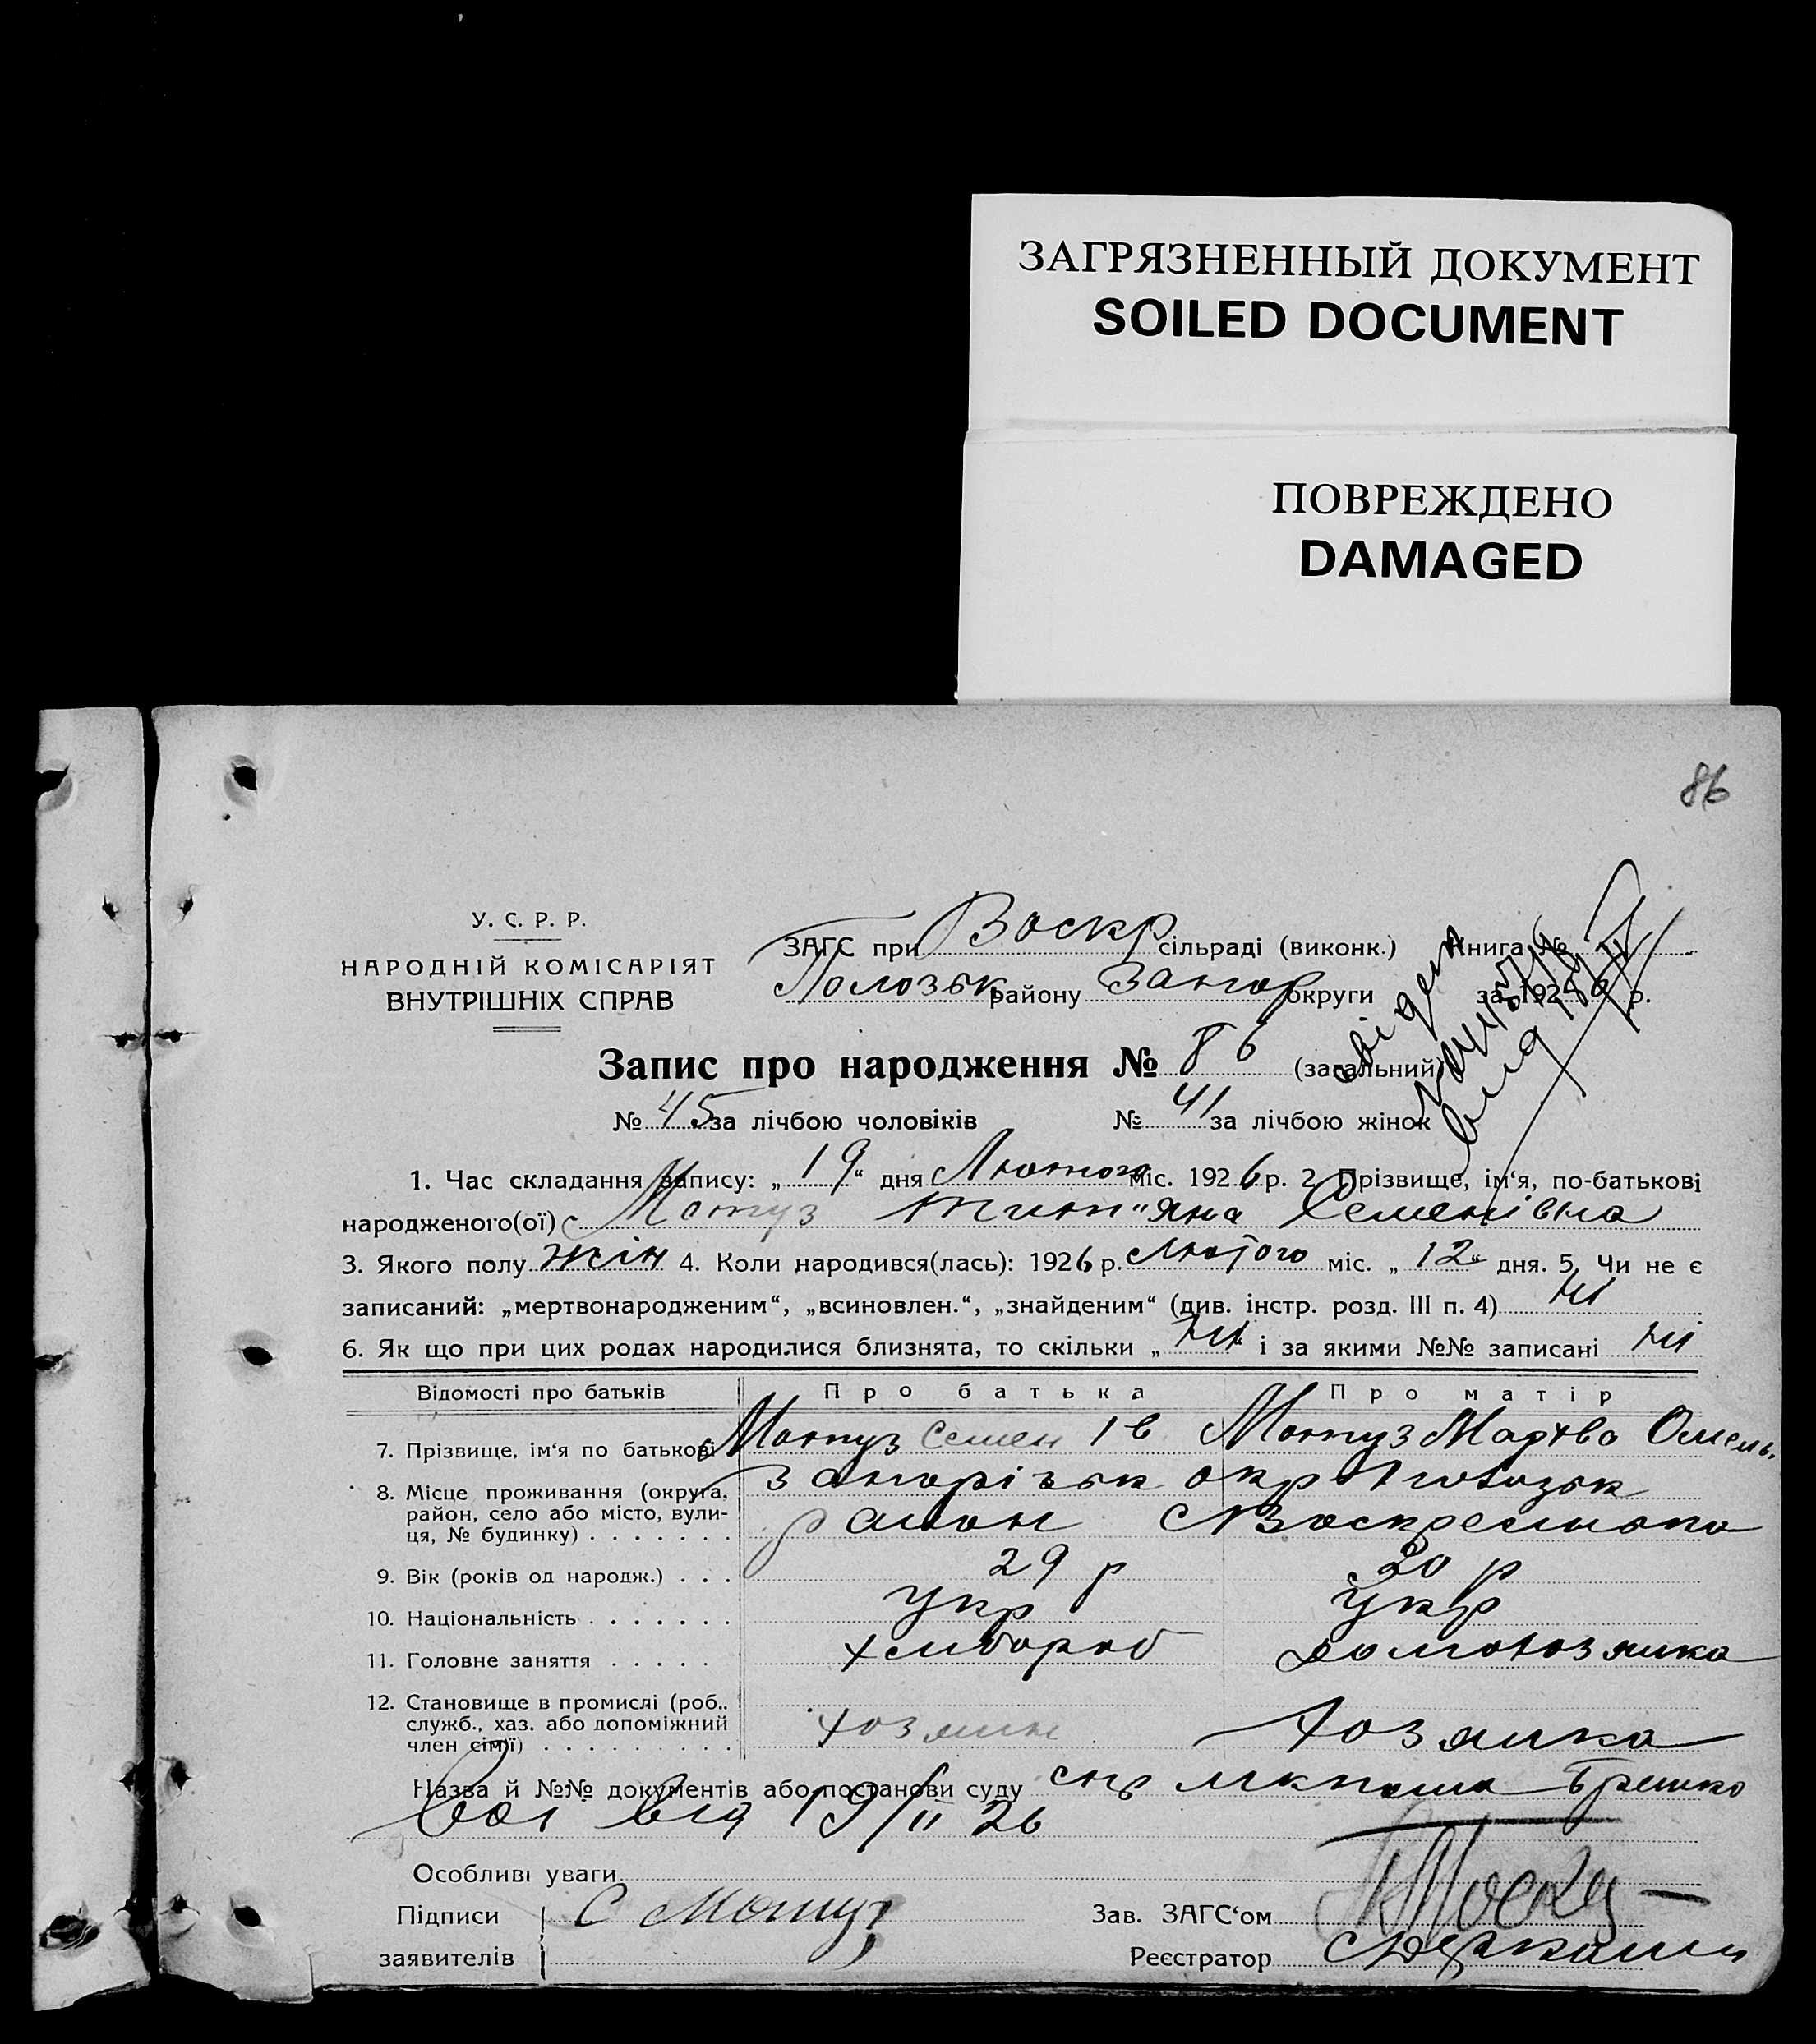 ЗАГРЯЗНЕННЫЙ ДОКУМЕНТ
SOILED DOCUMENT
ПОВРЕЖДЕНО
DAMAGED
86
У. С. Р. Р.
НАРОДНІЙ КОМІСАРІЯТ
ВНУТРІШНІХ СПРАВ
ЗАГС при Воскр сільраді (виконк.) Книга №
Полозьк району Запор округи за 1926 р.
Запис про народження № 86 (загальний)
№ 45 за лічбою чоловіків № 41 за лічбою жінок
1. Час складання запису: „19“ дня Лютого міс. 1926 р. 2 Прізвище, ім‘я, по-батькові
народженого(ої) Мотуз Семенівна
3. Якого полу жін 4. Коли народився(лась): 1926 р. Лютого міс. „12“ дня. 5. Чи не є
записаний: „мертвонародженим“, „всиновлен.“, „знайденим“ (див. інстр. розд. III п. 4) ні
6. Як що при цих родах народилися близнята, то скільки „ні“ і за якими №№ записані ні
Відомості про батьків Про батька Про матір
7. Прізвище, ім‘я по батькові Мотуз Семен Ів Мотуз Мархва Омель.
8. Місце проживання (округа, район, село або місто, вули-
ця, № будинку) . . . . . .
Запорізьк окр
район с Воскресенька
9. Вік (років од народж.) . . . 29 р 20 р
10. Національність . . . . . . . Укр Укр
11. Головне заняття . . . . . хлібороб домохозяйка
12. Становище в промислі (роб..
служб., хаз. або допоміжний
член сім‘ї) . . . . . . . . . хозяин хозяйка
Назва й №№ документів або постанови суду
від 19/II 26
Особливі уваги
Підписи С Мотуз Зав. ЗАГС‘ом
заявителів Реєстратор